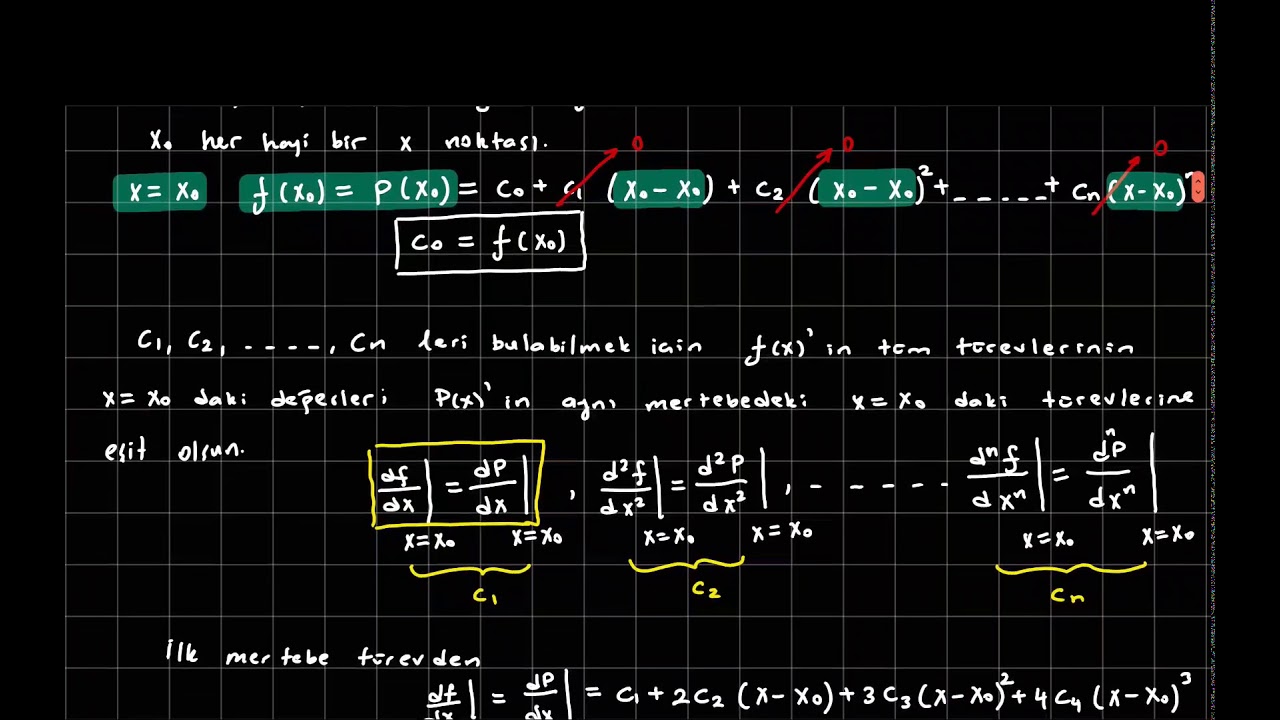 x₀ her hangi bir x noktası.
0 0 0
x = x₀ f(x₀) = P(x₀) = c₀ + c₁ (x₀ - x₀) + c₂ (x₀ - x₀)² + _ _ _ _ _ + cₙ (x - x₀)ⁿ
c₀ = f(x₀)
C₁, C₂, - - - -, Cn leri bulabilmek için f(x)' in tüm türevlerinin
x = x₀ daki değerleri P(x)' in aynı mertebedeki x = x₀ daki türevlerine
eşit olsun.
df/dx | = dP/dx | , d²f/dx² | = d²P/dx² | , - - - - - - dⁿf/dxⁿ | = dⁿP/dxⁿ |
x=x₀ x=x₀ x=x₀ x=x₀ x=x₀ x=x₀
C₁ C₂ Cn
İlk mertebe türevden
df/dx | = dP/dx | = c₁ + 2c₂ (x - x₀) + 3c₃ (x - x₀)² + 4c₄ (x - x₀)³